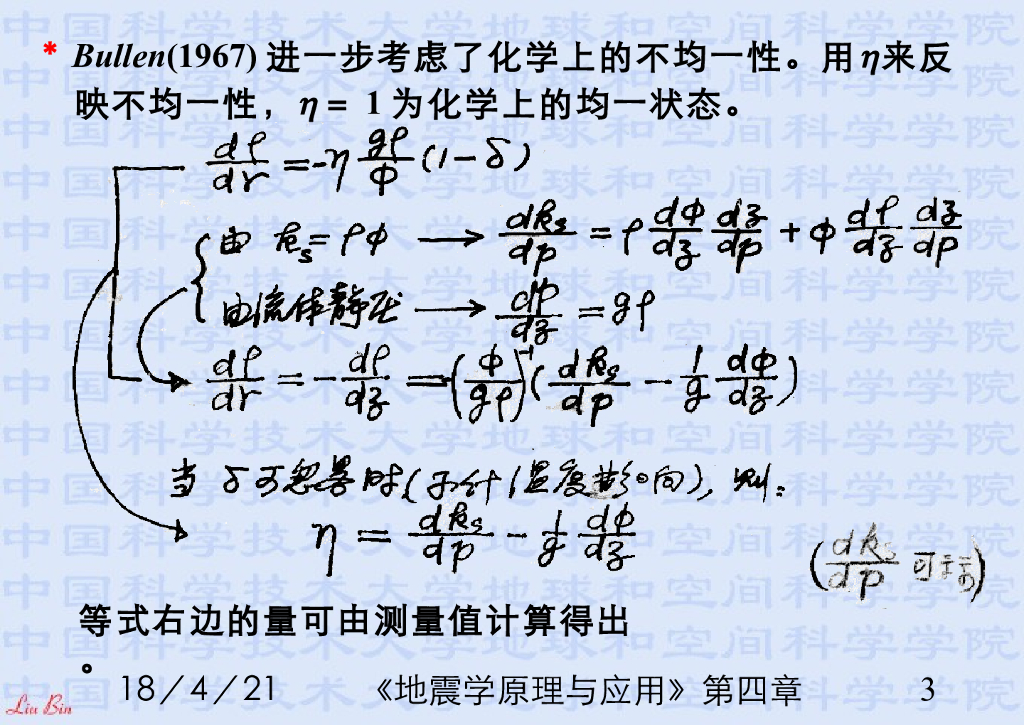 * Bullen(1967) 进一步考虑了化学上的不均一性。用η来反
映不均一性，η = 1 为化学上的均一状态。
dρ/dr = -η gρ/Φ (1-δ)
由 k_s = ρΦ → dk_s/dp = ρ dΦ/dz dz/dp + Φ dρ/dz dz/dp
由流体静压 → dp/dz = gρ
dρ/dr = - dρ/dz = -(Φ/gρ)^-1 (dk_s/dp - 1/g dΦ/dz)
当 δ可忽略时(不计温度影响), 则:
η = dk_s/dp - 1/g dΦ/dz
(dk_s/dp 可
等式右边的量可由测量值计算得出
。
18/4/21
《地震学原理与应用》第四章
3
Liu Bin
中国科学技术大学地球和空间科学学院